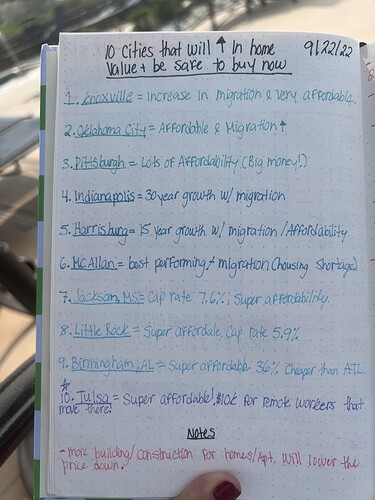 10 Cities that will ↑ in home
value + be safe to buy now
9/22/22
1. Knoxville = Increase in migration & very affordable.
2. Oklahoma City = Affordable & Migration ↑
3. Pittsburgh = Lots of Affordability (Big money!)
4. Indianapolis = 30 year growth w/ migration
5. Harrisburg = 15 year growth w/ migration / Affordability
6. McAllan = best performing, + migration (housing shortage)
7. Jackson, MS = Cap rate 7.6%, Super affordability.
8. Little Rock = Super affordale, Cap rate 5.9%.
9. Birmingham, AL = Super affordable 36% Cheaper than ATL.
☆
10. Tulsa = Super affordable! $10K for remote workers that
move there!
Notes
- more building/construction for homes/Apt. will lower the
price down.